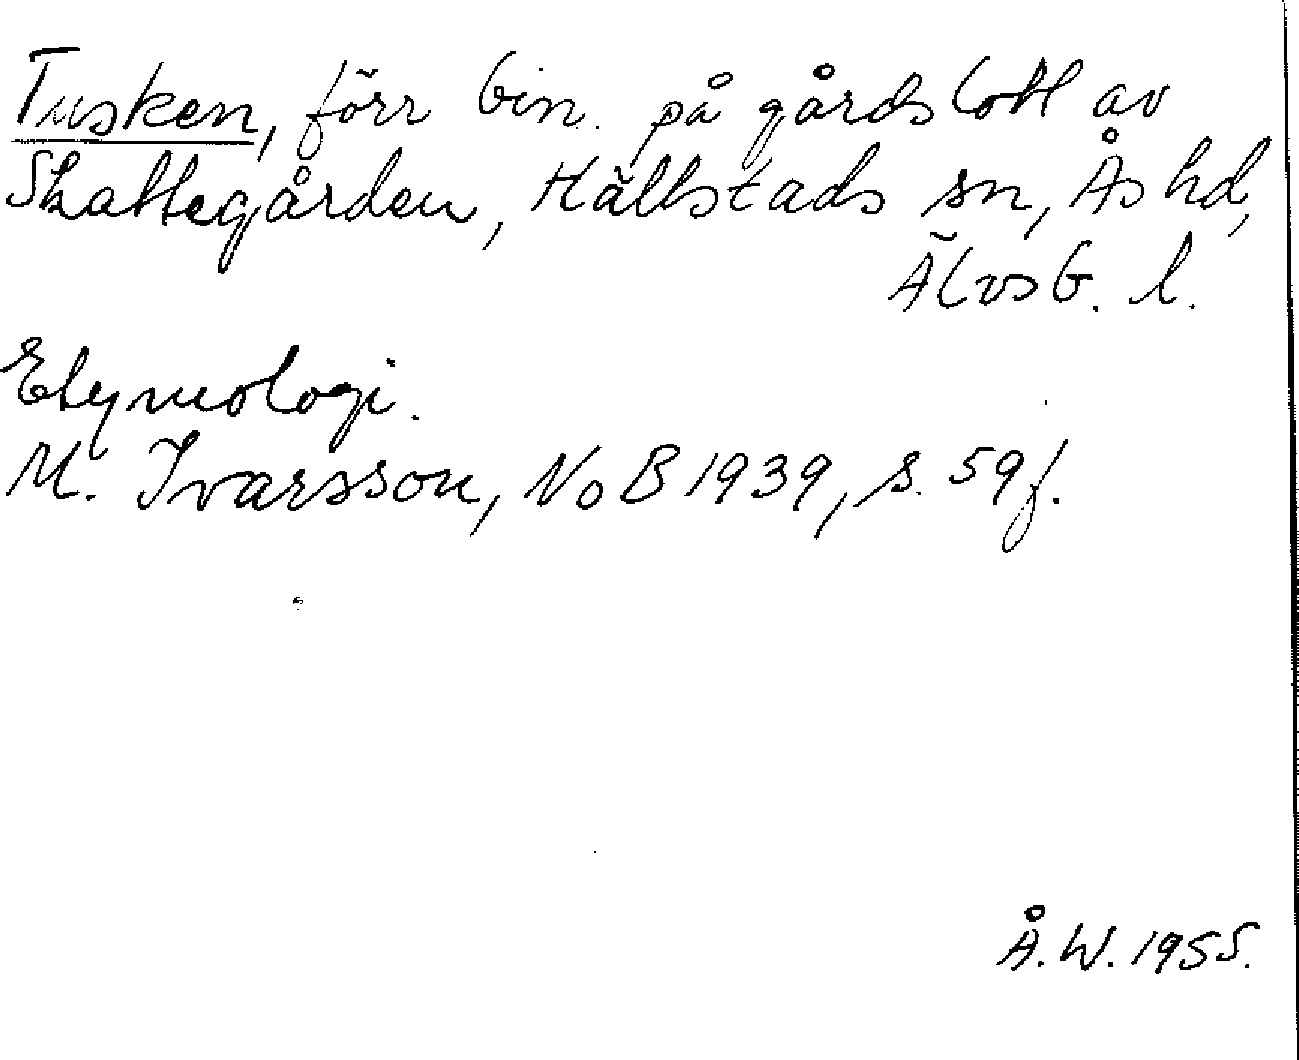 Tusken, förr bin. på gårdslott av
Skattegården, Hällstads sn, Ås hd,
Älvsb. l.
Etymologi.
M. Ivarsson, NoB 1939, s. 59 f.
Å. W. 1955.